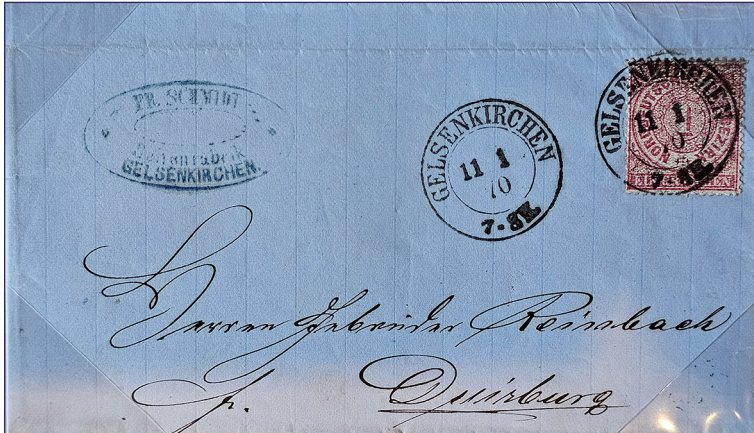 FR. SCHMIDT
GELSENKIRCHEN.
GELSENKIRCHEN
11 1
70
7-8N.
GELSENKIRCHEN
11 1
70
7-8N.
1
EIN GROSCHEN
Herren Gebrüder Reinbach
Duisburg